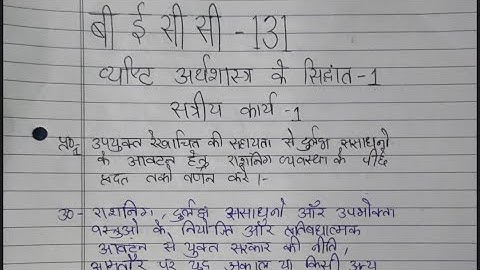 बी ई सी सी - 131
व्यष्टि अर्थशास्त्र के सिद्धांत - 1
सत्रीय कार्य - 1
प्र०1 उपयुक्त रेखाचित्र की सहायता से दुर्लभ संसाधनो
के आवंटन हेतु राशनिंग व्यवस्था के पीछे
प्रदत तर्को वर्णन करे।-
उ०- राशनिंग, दुर्लभ संसाधनो और उपभोक्ता
वस्तुओ के नियंत्रित और प्रतिबंधात्मक
आवंटन से युक्त सरकार की नीति,
आमतौर पर युद्ध, अकाल या किसी अन्य